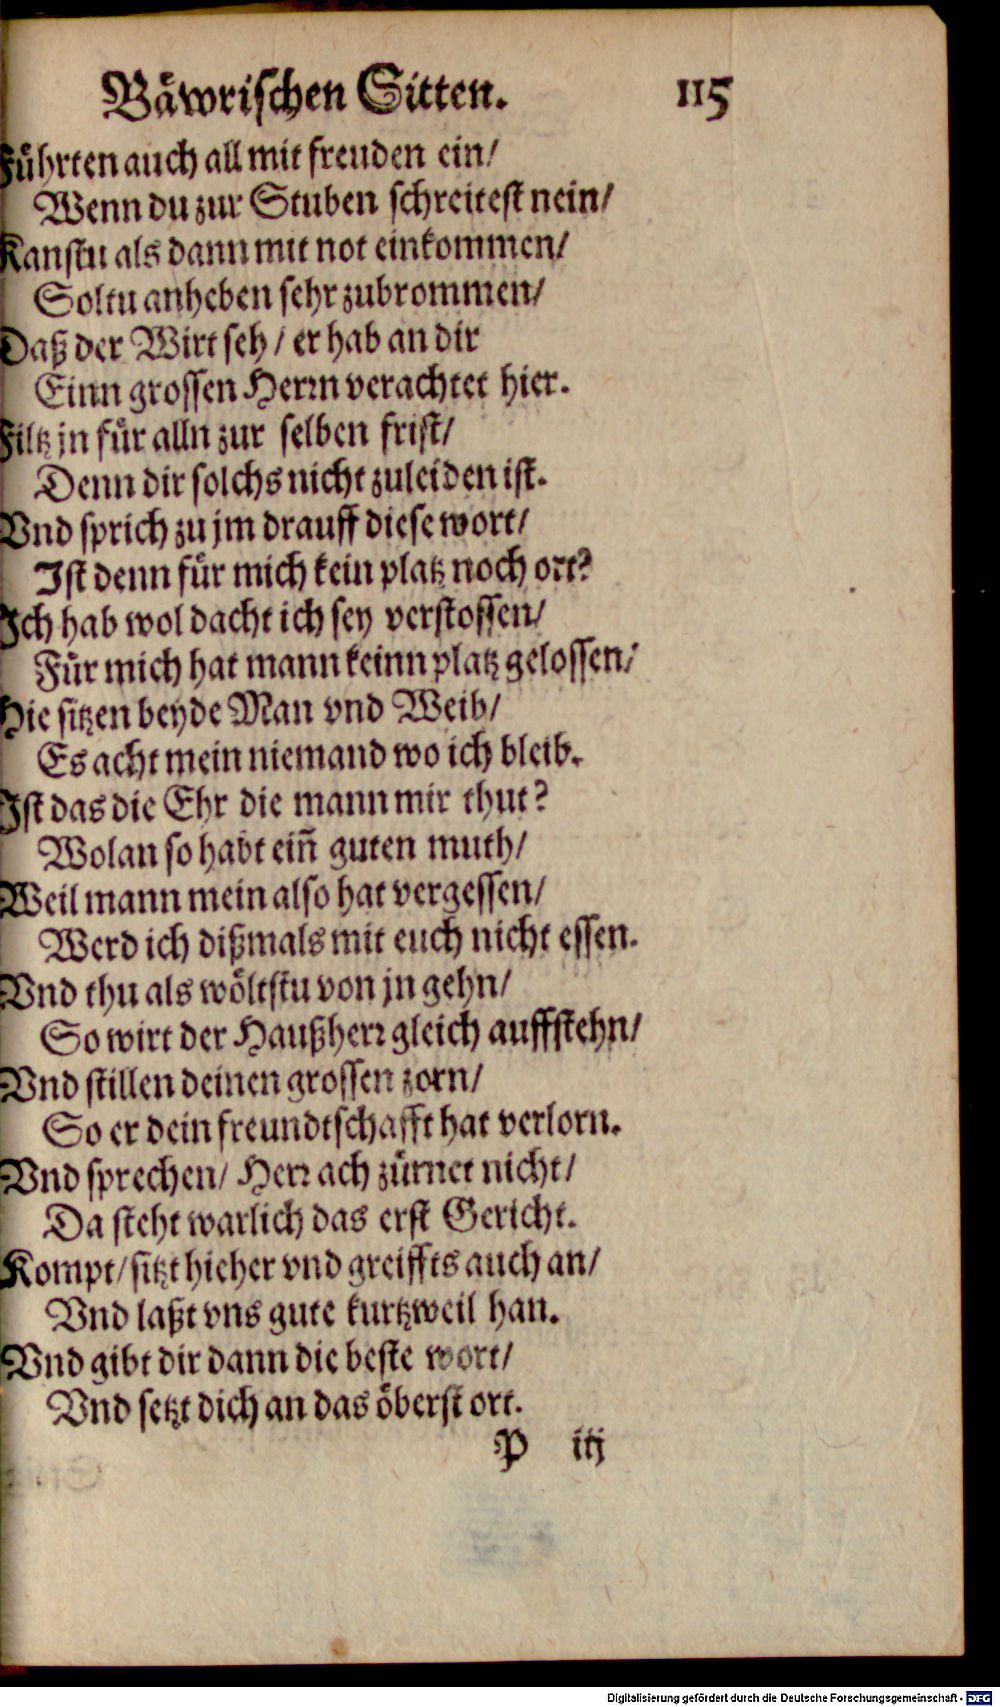 Bäwrischen Sitten. 115
Führten auch all mit freuden ein/
Wenn du zur Stuben schreitest nein/
Kanstu als dann mit not einkommen/
Soltu anheben sehr zubrommen/
Daß der Wirt seh/ er hab an dir
Einn grossen Herrn verachtet hier.
Filtz jn für alln zur selben frist/
Denn dir solchs nicht zuleiden ist.
Vnd sprich zu jm drauff diese wort/
Ist denn für mich kein platz noch ort?
Ich hab wol dacht ich sey verstossen/
Für mich hat mann keinn platz gelossen/
Hie sitzen beyde Man vnd Weib/
Es acht mein niemand wo ich bleib.
Ist das die Ehr die mann mir thut?
Wolan so habt eiñ guten muth/
Weil mann mein also hat vergessen/
Werd ich dißmals mit euch nicht essen.
Vnd thu als wöltstu von jn gehn/
So wirt der Haußherr gleich auffstehn/
Vnd stillen deinen grossen zorn/
So er dein freundtschafft hat verlorn.
Vnd sprechen/ Herr ach zürnet nicht/
Da steht warlich das erst Gericht.
Kompt/ sitzt hieher vnd greiffts auch an/
Vnd laßt vns gute kurtzweil han.
Vnd gibt dir dann die beste wort/
Vnd setzt dich an das öberst ort.
P iij
Digitalisierung gefördert durch die Deutsche Forschungsgemeinschaft - DFG